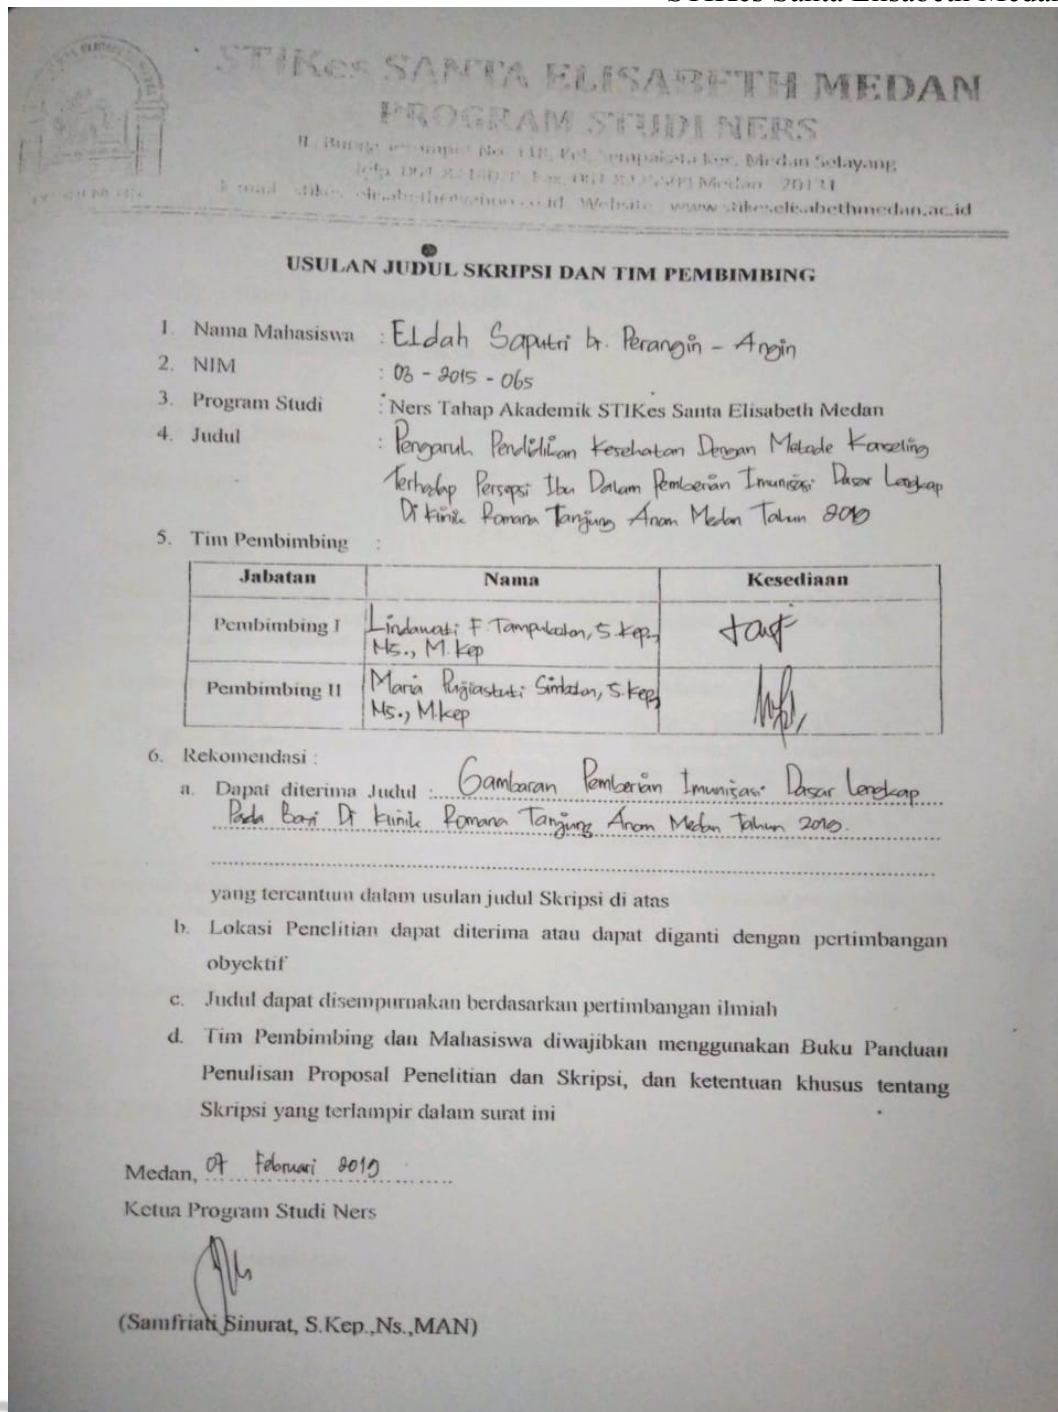 STIKes SANTA ELISABETH MEDAN
PROGRAM STUDI NERS
No. 118, Kel. Sempakata Kec. Medan Selayang
Medan 20131
Website : www.stikeselisabethmedan.ac.id
USULAN JUDUL SKRIPSI DAN TIM PEMBIMBING
1. Nama Mahasiswa : Eldah Saputri br. Perangin - Angin
2. NIM : 03 - 2015 - 065
3. Program Studi : Ners Tahap Akademik STIKes Santa Elisabeth Medan
4. Judul : Pengaruh Pendidikan Kesehatan Dengan Metode Konseling
Terhadap Persepsi Ibu Dalam Pemberian Imunisasi Dasar Lengkap
Di Klinik Romana Tanjung Anom Medan Tahun 2019
5. Tim Pembimbing :
Jabatan Nama Kesediaan
Pembimbing I Lindawati F. Tampubolon, S.Kep.,
Ns., M.Kep
Pembimbing II Maria Pujiastuti Simbolon, S.Kep,
Ns., M.Kep
6. Rekomendasi :
a. Dapat diterima Judul : Gambaran Pemberian Imunisasi Dasar Lengkap
Pada Bayi Di Klinik Romana Tanjung Anom Medan Tahun 2019.
yang tercantum dalam usulan judul Skripsi di atas
b. Lokasi Penelitian dapat diterima atau dapat diganti dengan pertimbangan
obyektif
c. Judul dapat disempurnakan berdasarkan pertimbangan ilmiah
d. Tim Pembimbing dan Mahasiswa diwajibkan menggunakan Buku Panduan
Penulisan Proposal Penelitian dan Skripsi, dan ketentuan khusus tentang
Skripsi yang terlampir dalam surat ini
Medan, 07 Februari 2019
Ketua Program Studi Ners
(Samfriati Sinurat, S.Kep.,Ns.,MAN)